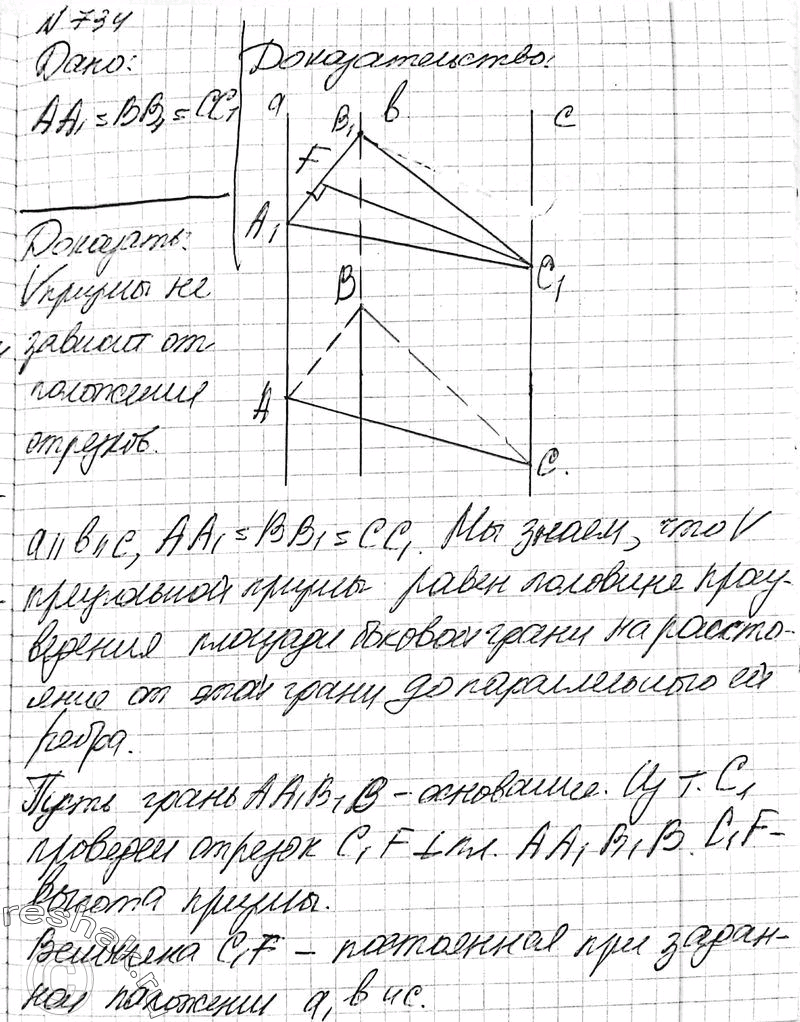 N 734
Дано: Доказательство:
AA₁ = BB₁ = CC₁
a B₁ в c
F
A₁
C₁
B
A
C.
Доказать:
V призмы не
зависит от
положения
отрезков.
a || в || c, AA₁ = BB₁ = CC₁. Мы знаем, что V
треугольной призмы равен половине произ-
ведения площади боковой грани на рассто-
яние от этой грани до параллельного ей
ребра.
Пусть грань AA₁B₁B – основание. Из т. C₁
проведем отрезок C₁F ⊥ пл. AA₁B₁B. C₁F –
высота призмы.
Величина C₁F – постоянная при задан-
ном положении a, в и c.
reshak.ru
©